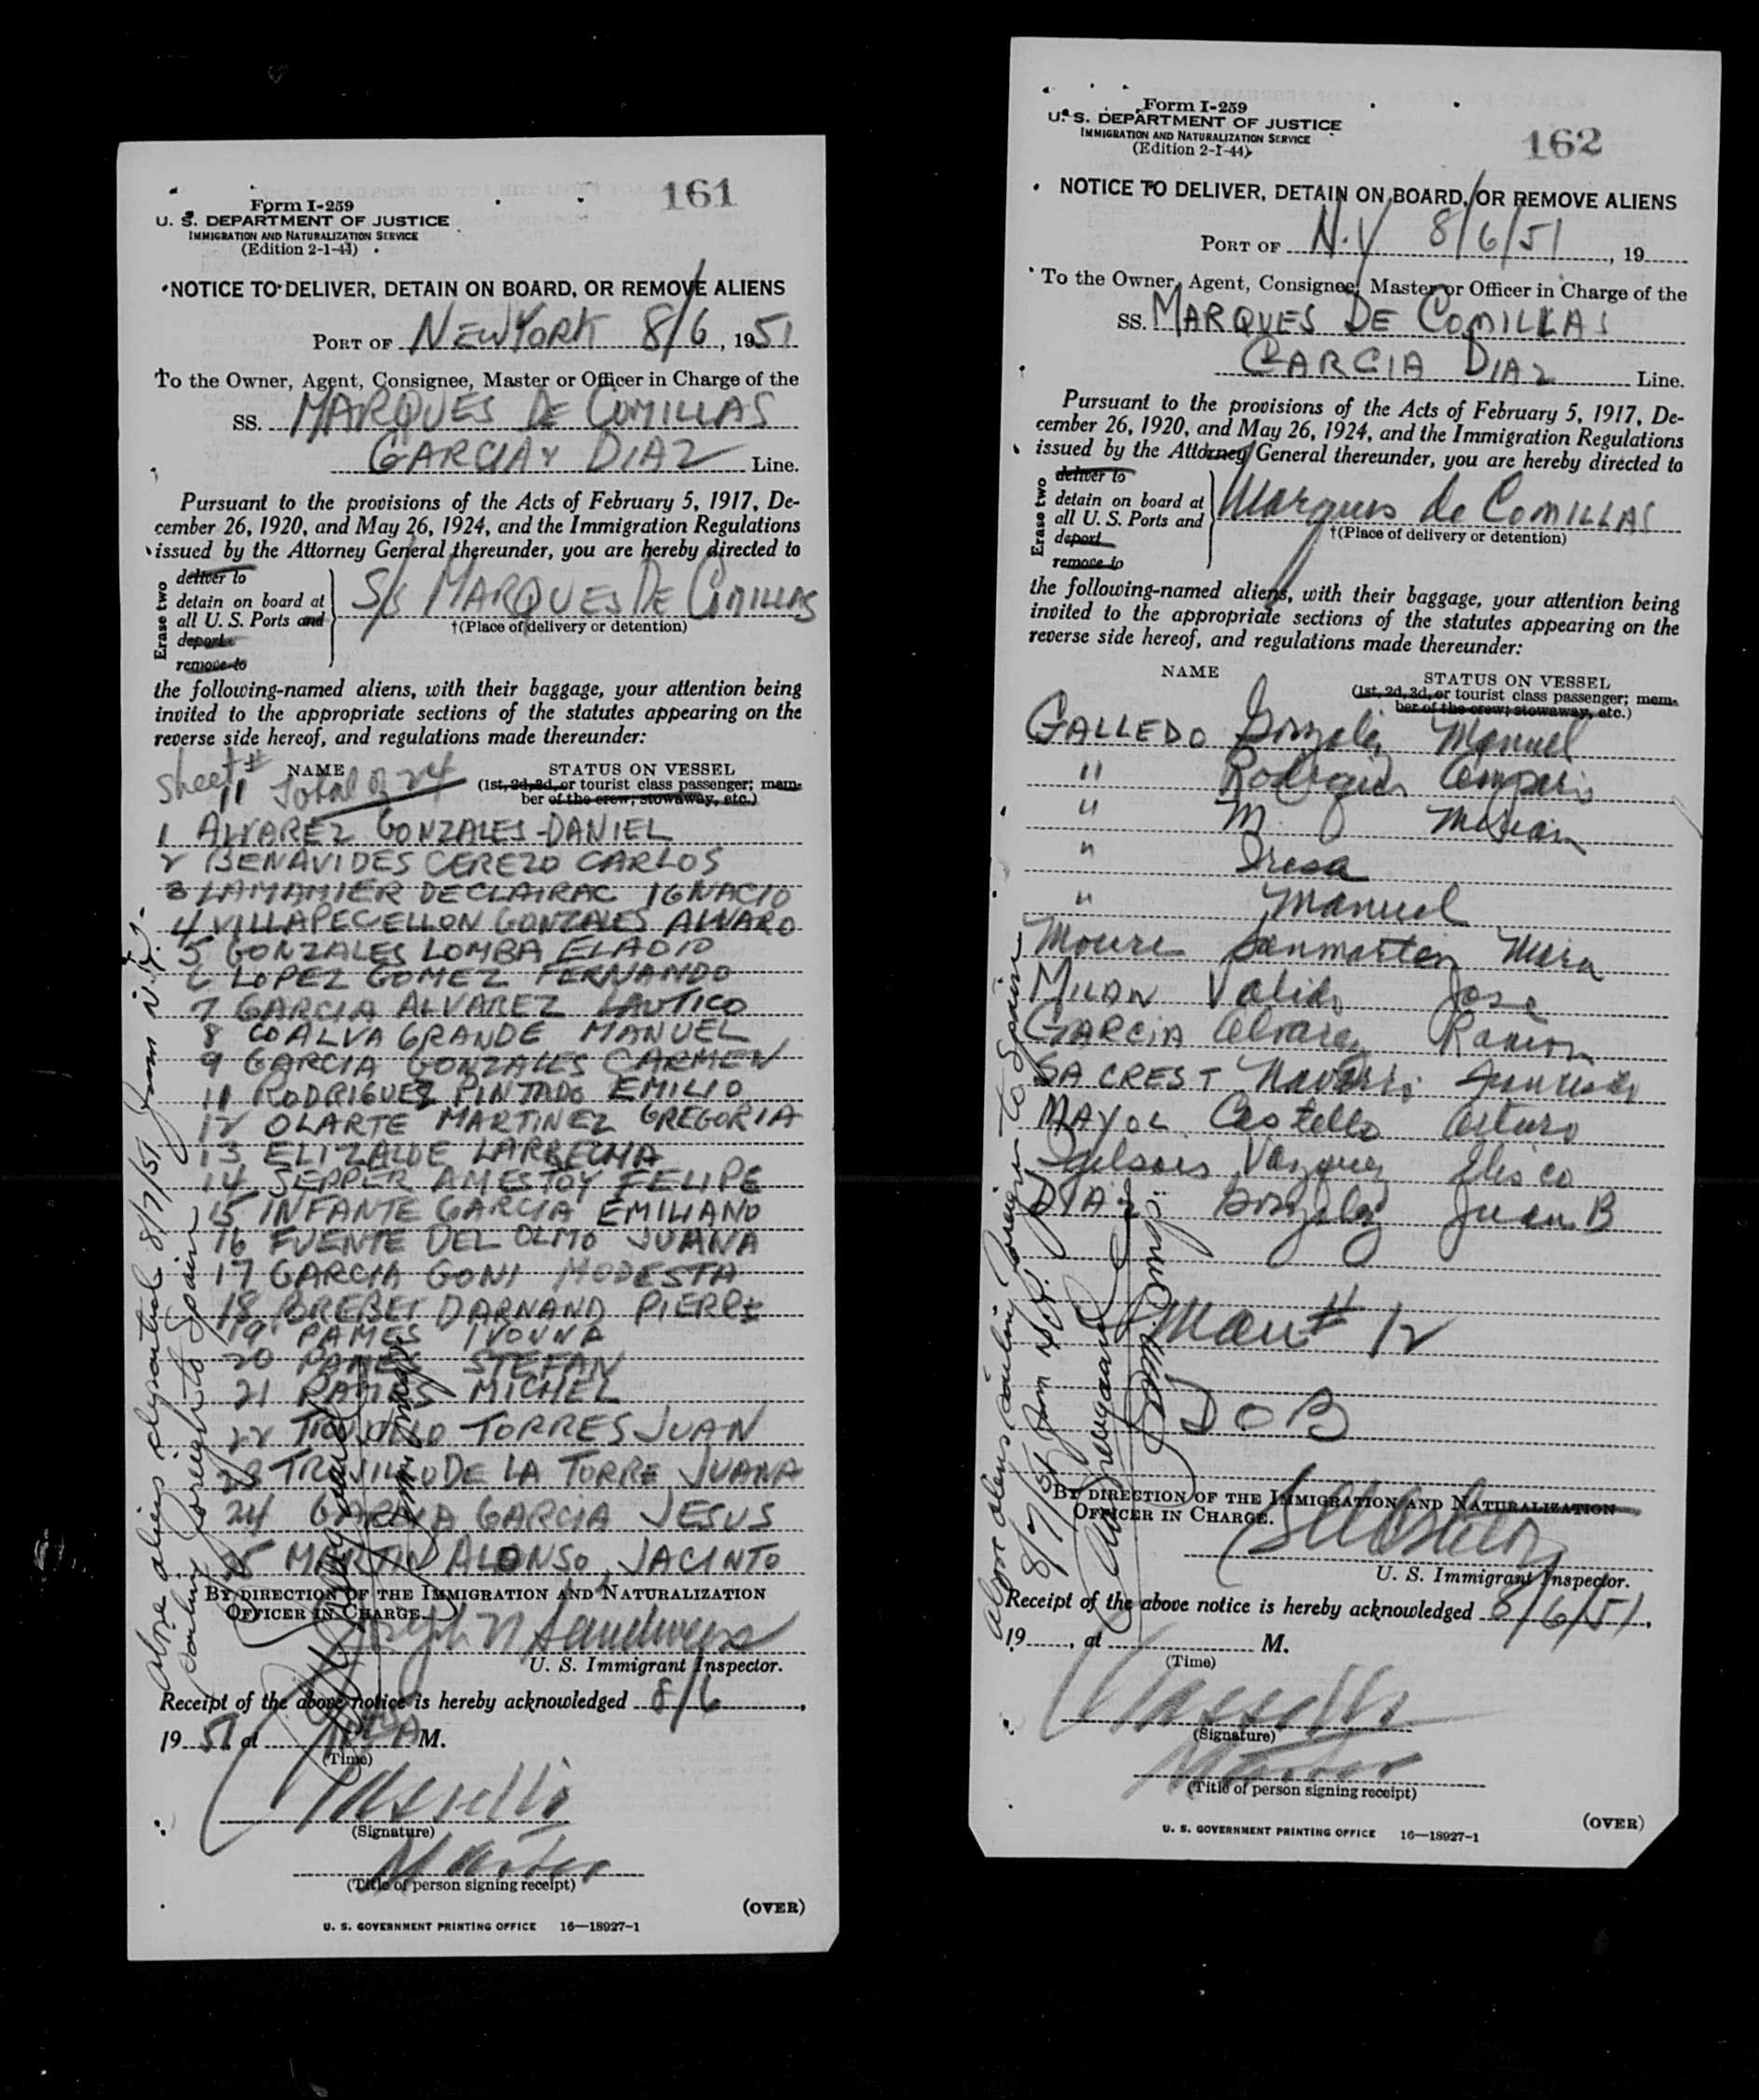 161
Form I-259
U. S. DEPARTMENT OF JUSTICE
IMMIGRATION AND NATURALIZATION SERVICE
(Edition 2-1-44)
NOTICE TO DELIVER, DETAIN ON BOARD, OR REMOVE ALIENS
PORT OF NEW YORK 8/6, 1951
To the Owner, Agent, Consignee, Master or Officer in Charge of the
SS. MARQUES DE COMILLAS
GARCIA Y DIAZ Line.
Pursuant to the provisions of the Acts of February 5, 1917, De-
cember 26, 1920, and May 26, 1924, and the Immigration Regulations
issued by the Attorney General thereunder, you are hereby directed to
Erase two
deliver to
detain on board at
all U. S. Ports and
deport
remove to
S/S MARQUES DE COMILLAS
†(Place of delivery or detention)
the following-named aliens, with their baggage, your attention being
invited to the appropriate sections of the statutes appearing on the
reverse side hereof, and regulations made thereunder:
NAME STATUS ON VESSEL
(1st, 2d, 3d, or tourist class passenger; mem-
ber of the crew; stowaway, etc.)
Sheet # 11 Total of 24
1 ALVAREZ GONZALES-DANIEL
2 BENAVIDES CEREZO CARLOS
3 LAMAMIER DECLAIRAC IGNACIO
4 VILLAPECELLON GONZALES ALVARO
5 GONZALES LOMBA ELADIO
6 LOPEZ GOMEZ FERNANDO
7 GARCIA ALVAREZ LAUTICO
8 COALVA GRANDE MANUEL
9 GARCIA GONZALES CARMEN
11 RODRIGUEZ PINTADO EMILIO
12 OLARTE MARTINEZ GREGORIA
13 ELIZALDE LARRECHA
14 SEPPER AMESTOY FELIPE
15 INFANTE GARCIA EMILIANO
16 FUENTE DEL OLMO JUANA
17 GARCIA GONI MODESTA
18 BREBEI DARNAND PIERRE
19 PAMES IVONNA
20 PAMES STEFAN
21 PAMES MICHEL
22 TRUJILLO TORRES JUAN
23 TRUJILLO DE LA TORRE JUANA
24 GARCIA GARCIA JESUS
25 MARTIN ALONSO, JACINTO
Above aliens departed 8/7/51 from N.Y.
sailing foreign to Spain
BY DIRECTION OF THE IMMIGRATION AND NATURALIZATION
OFFICER IN CHARGE.
U. S. Immigrant Inspector.
Receipt of the above notice is hereby acknowledged 8/6,
1951, at M.
(Time)
(Signature)
Master
(Title of person signing receipt)
(OVER)
U. S. GOVERNMENT PRINTING OFFICE 16—18927-1
162
Form I-259
U. S. DEPARTMENT OF JUSTICE
IMMIGRATION AND NATURALIZATION SERVICE
(Edition 2-1-44)
NOTICE TO DELIVER, DETAIN ON BOARD, OR REMOVE ALIENS
PORT OF N.Y 8/6/51, 19
To the Owner, Agent, Consignee, Master or Officer in Charge of the
SS. MARQUES DE COMILLAS
GARCIA DIAZ Line.
Pursuant to the provisions of the Acts of February 5, 1917, De-
cember 26, 1920, and May 26, 1924, and the Immigration Regulations
issued by the Attorney General thereunder, you are hereby directed to
Erase two
deliver to
detain on board at
all U. S. Ports and
deport
remove to
Marques de COMILLAS
†(Place of delivery or detention)
the following-named aliens, with their baggage, your attention being
invited to the appropriate sections of the statutes appearing on the
reverse side hereof, and regulations made thereunder:
NAME STATUS ON VESSEL
(1st, 2d, 3d, or tourist class passenger; mem-
ber of the crew; stowaway, etc.)
GALLEDO Gonzalez Manuel
" Rodriguez
" M.
"
" Manuel
Moure Sanmartin
MILAN Valido Jose
GARCIA Alvarez Ramon
SACREST Navarro
MAYOL Castello Arturo
Vazquez Eliseo
DIAZ Gonzalez Juan B
Man # 12
DOB
Above aliens sailing foreign to Spain
8/7/51 from N.Y.
BY DIRECTION OF THE IMMIGRATION AND NATURALIZATION
OFFICER IN CHARGE.
U. S. Immigrant Inspector.
Receipt of the above notice is hereby acknowledged 8/6/51,
19, at M.
(Time)
(Signature)
Master
(Title of person signing receipt)
(OVER)
U. S. GOVERNMENT PRINTING OFFICE 16—18927-1